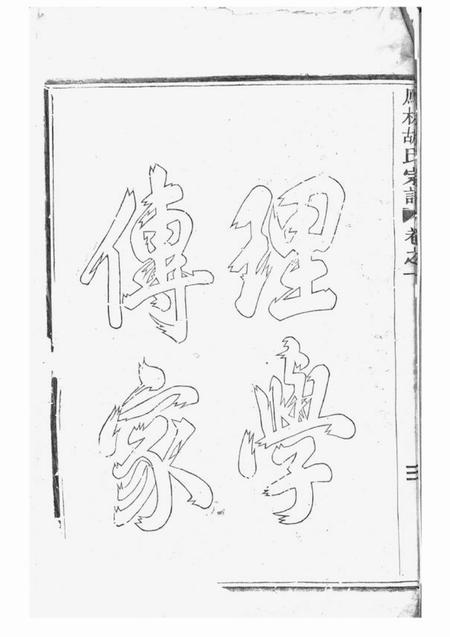 理學
傳家
鳳林胡氏宗譜
卷之一
三